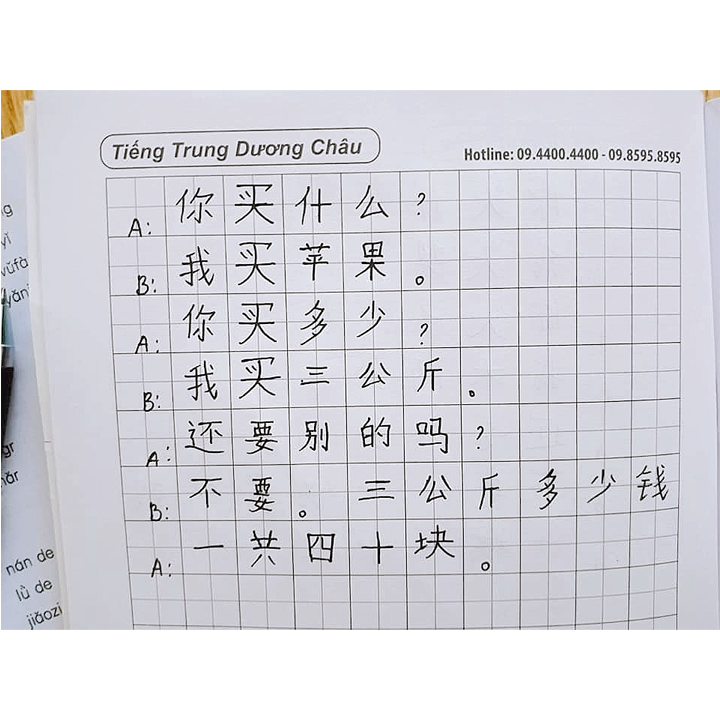 Tiếng Trung Dương Châu
Hotline: 09.4400.4400 - 09.8595.8595
A: 你买什么?
B: 我买苹果。
A: 你买多少?
B: 我买三公斤。
A: 还要别的吗?
B: 不要。三公斤多少钱
A: 一共四十块。
yī
vǔfà
nán de
lǜ de
jiǎozi